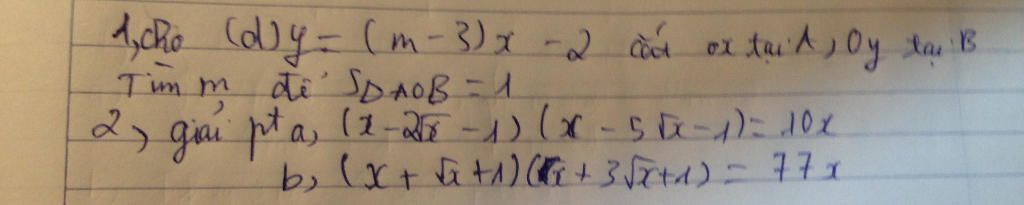 1, cho (d) y = (m - 3)x - 2 cắt ox tại A, Oy tại B
Tìm m để S∆AOB = 1
2, giải pt a, (x - 2√x - 1)(x - 5√x - 1) = 10x
b, (x + √x + 1)(x + 3√x + 1) = 77x